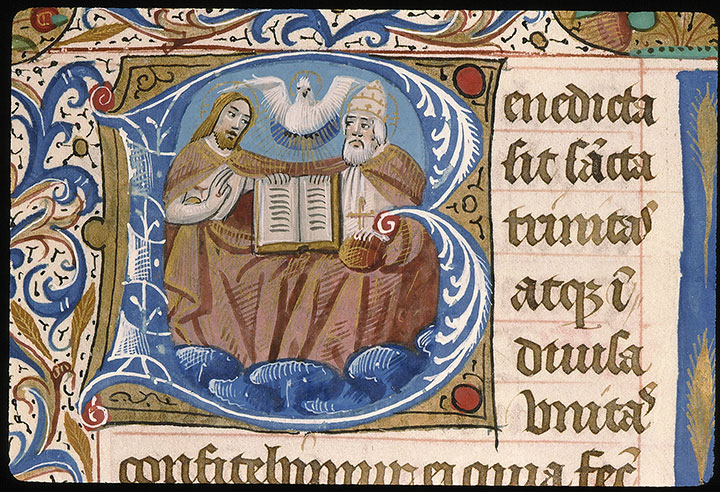 Benedicta
sit sc̄ta
trinitas
atq̄ i
diuisa
vnitas
confitebimur ei quia fec̄